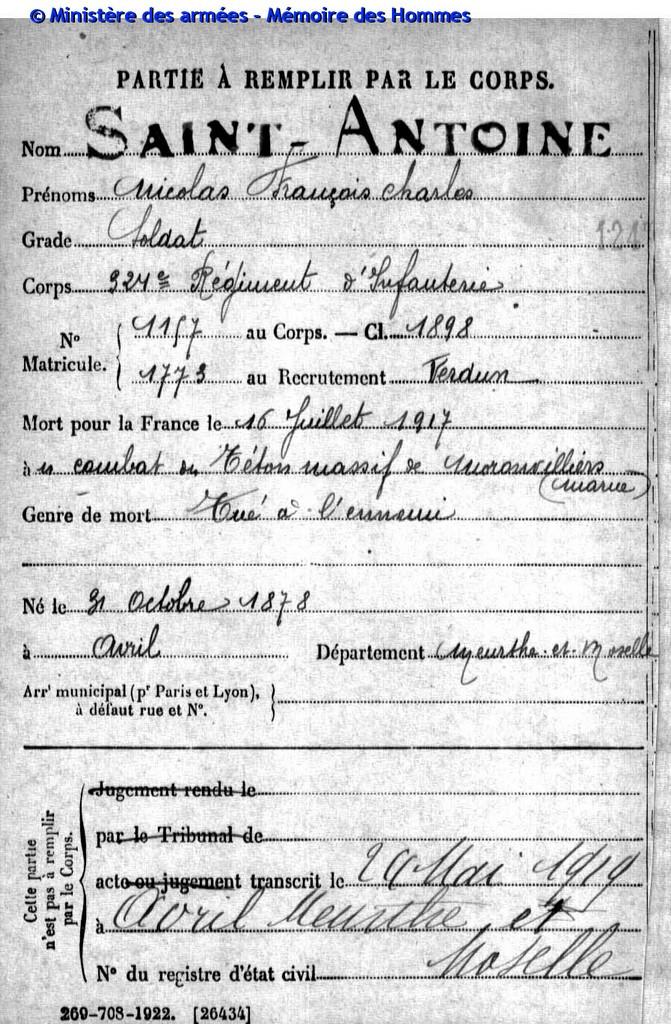 © Ministère des armées - Mémoire des Hommes
PARTIE À REMPLIR PAR LE CORPS.
Nom SAINT-ANTOINE
Prénoms Nicolas François Charles
Grade Soldat
121
Corps 324e Régiment d'Infanterie
N° Matricule. { 1157 au Corps. — Cl. 1898
1773 au Recrutement Verdun
Mort pour la France le 16 Juillet 1917
à combat du Téton massif de Moronvilliers
(Marne)
Genre de mort Tué à l'ennemi
Né le 31 Octobre 1878
à Avril Département Meurthe-et-Moselle
Arr' municipal (pr Paris et Lyon),
à défaut rue et N°. }
Cette partie
n'est pas à remplir
par le Corps.
Jugement rendu le
par le Tribunal de
acte ou jugement transcrit le 29 Mai 1919
à Avril Meurthe et
Moselle
N° du registre d'état civil
269-708-1922. [26434]